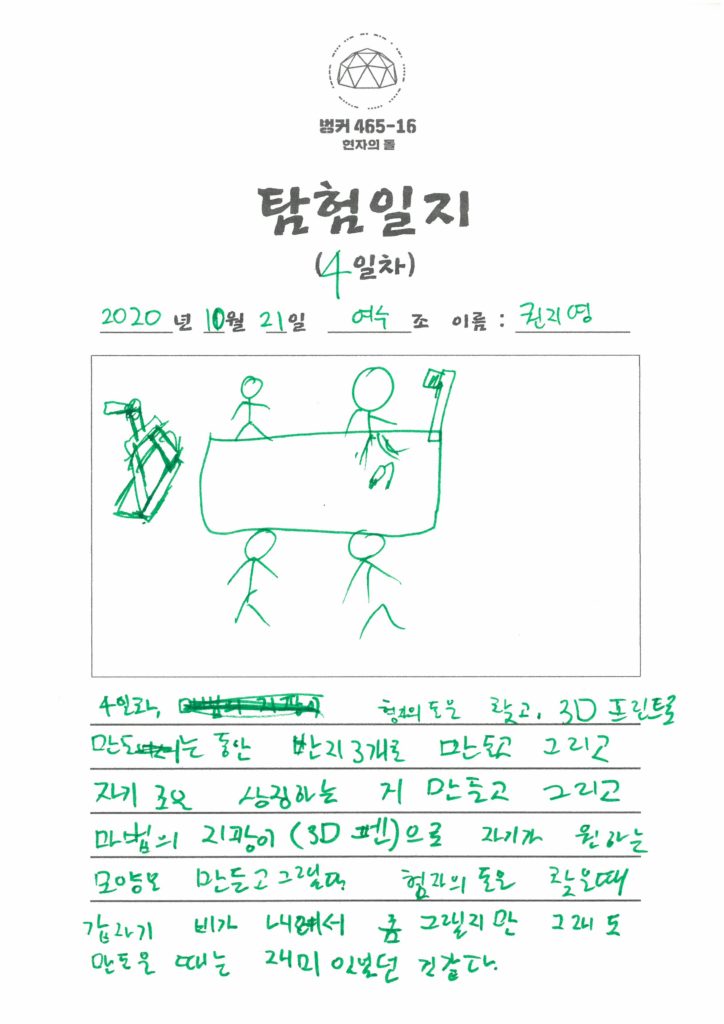 벙커 465-16
현자의 돌
탐험일지
(4일차)
2020년 10월 21일 여수조 이름 : 권지영
4일차, 현자의 돌을 찾고, 3D 프린트로
만드는 동안 반지3개로 만들고 그리고
자키 로은 상징하는 거 만들고 그리고
마법의 지팡이 (3D 펜)으로 자기가 원하는
모양모 만들고 현자의 돌은 찾을때
갑자기 비가 내려서 좀 그렇지만 그래도
만드을 때는 재미있었던 것같다.